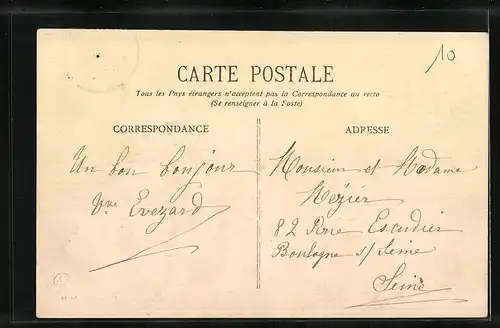 10
CARTE POSTALE
Tous les Pays étrangers n'acceptent pas la Correspondance au recto
(Se renseigner à la Poste)
CORRESPONDANCE
Un bon bonjour
Vve Evezard
ADRESSE
Monsieur et Madame
Mézier
82 Rue Escudier
Boulogne s/ Seine
Seine